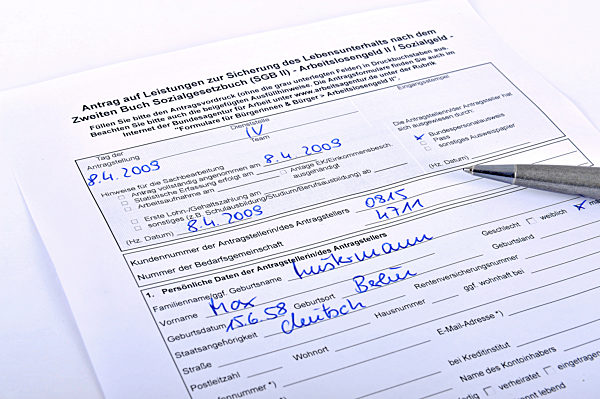 Antrag auf Leistungen zur Sicherung des Lebensunterhalts nach dem
Zweiten Buch Sozialgesetzbuch (SGB II) - Arbeitslosengeld II / Sozialgeld -
Füllen Sie bitte den Antragsvordruck (ohne die grau unterlegten Felder) in Druckbuchstaben aus.
Beachten Sie bitte auch die beigefügten Ausfüllhinweise. Die Antragsformulare finden Sie auch im
Internet der Bundesagentur für Arbeit unter www.arbeitsagentur.de unter der Rubrik
"Formulare für Bürgerinnen & Bürger > Arbeitslosengeld II".
Tag der
Antragstellung
Dienststelle
Eingangsstempel
8.4.2009
IV
Team
Hinweise für die Sachbearbeitung
Antrag vollständig angenommen am 8.4.2009
Statistische Erfassung erfolgt am
Anlage EK/Einkommensbesch.
ausgehändigt
Arbeitsaufnahme am
Erste Lohn-/Gehaltszahlung am
sonstiges (z.B. Schulausbildung/Studium/Berufsausbildung) ab
(Hz. Datum) 8.4.2009
Die Antragstellerin/der Antragsteller hat
sich ausgewiesen durch:
x Bundespersonalausweis
Pass
sonstiges Ausweispapier
(Hz. Datum)
Kundennummer der Antragstellerin/des Antragstellers 0815
Nummer der Bedarfsgemeinschaft 4711
1. Persönliche Daten der Antragstellerin/des Antragstellers
Familienname/ggf. Geburtsname Mustermann
Geschlecht weiblich x
Vorname Max
Geburtsdatum 15.6.58 Geburtsort Berlin
Geburtsland
Staatsangehörigkeit deutsch
Rentenversicherungsnummer
Straße
Hausnummer
ggf. wohnhaft bei
Postleitzahl
Wohnort
E-Mail-Adresse *)
bei Kreditinstitut
Name des Kontoinhabers
verheiratet